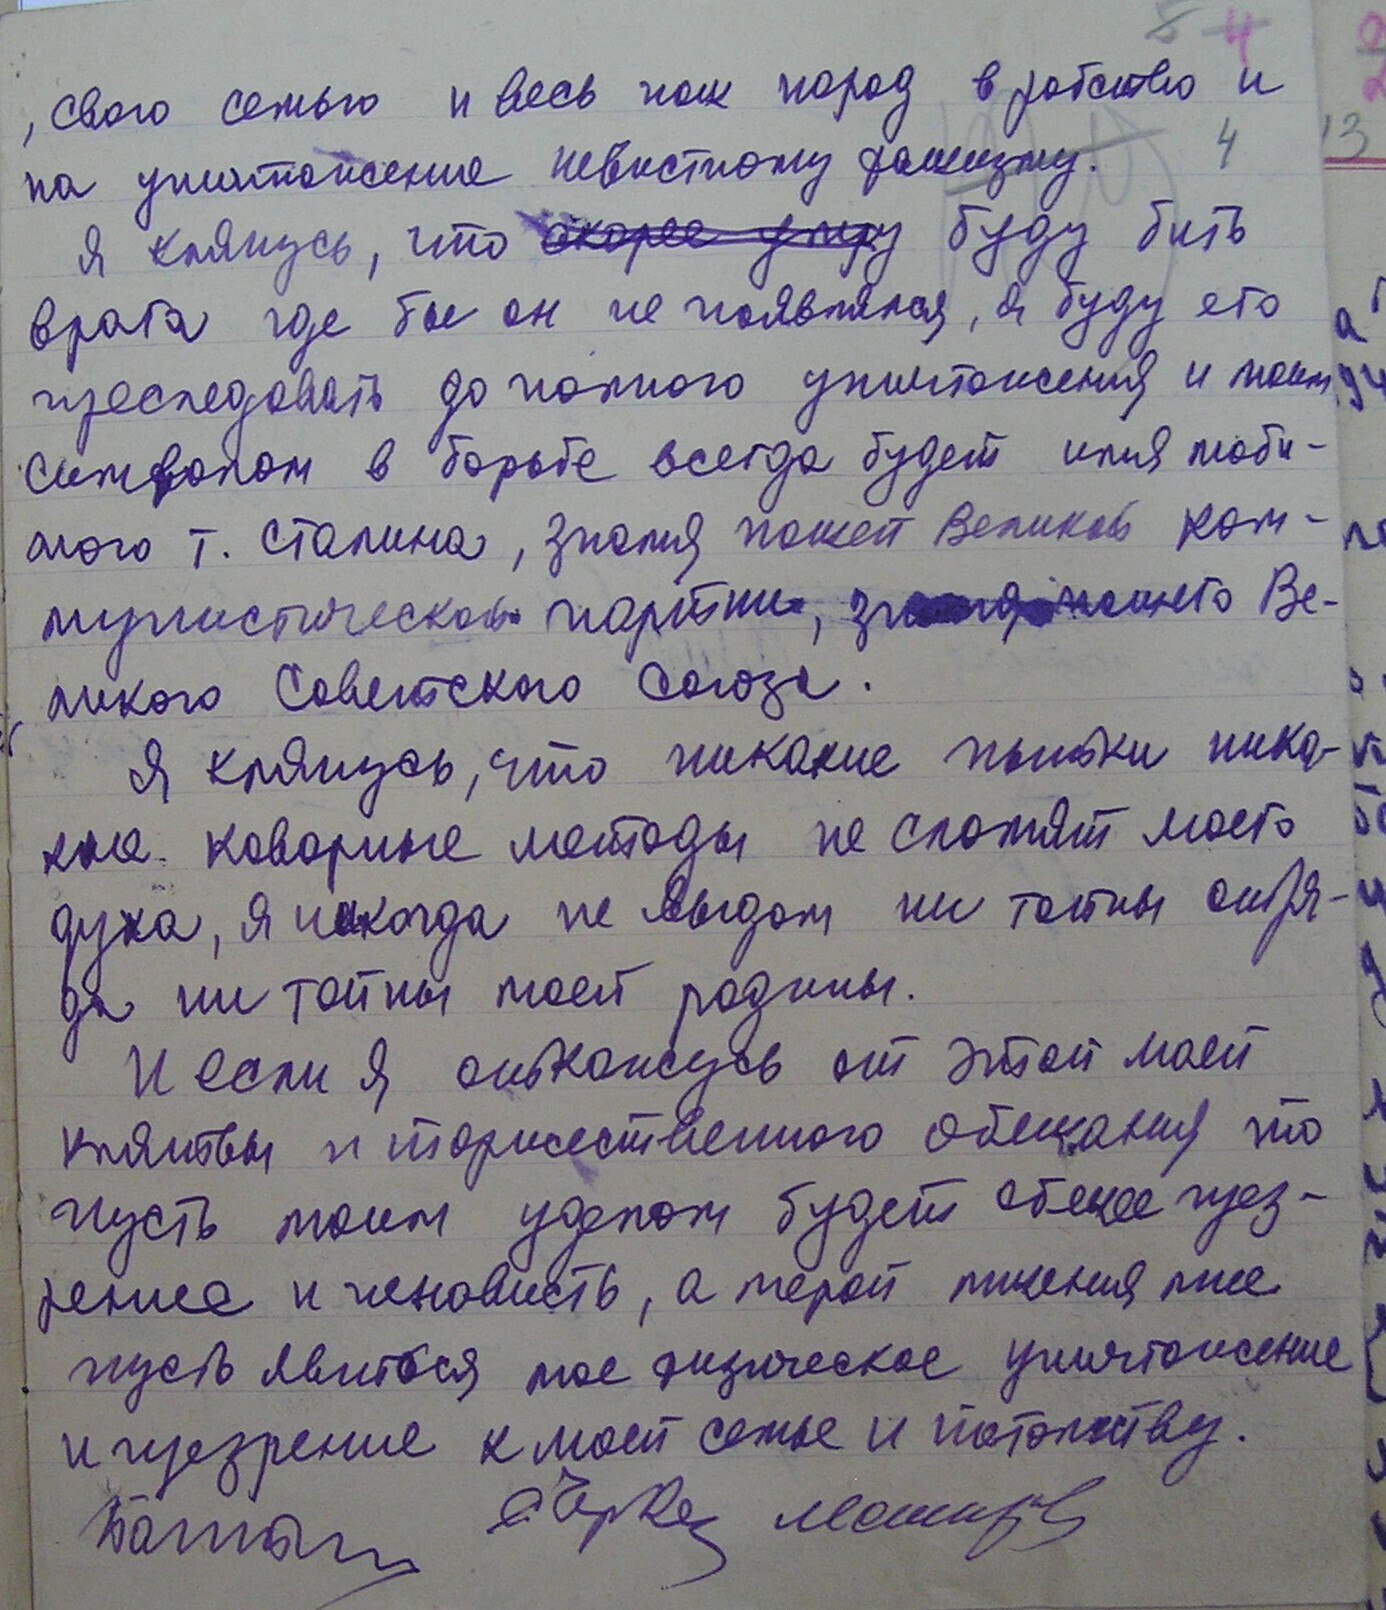 4
, свою семью и весь наш народ в рабство и
на уничтожение невистному фашизму. 4 13
Я клянусь, что скорее умру буду бить
врага где бы он не появлялся, я буду его
преследовать до полного уничтожения и моим
символом в борьбе всегда будет имя люби-
мого т. Сталина, знамя нашей Великой ком-
мунистической партии, знамя нашего Ве-
ликого Советского Союза.
Я клянусь, что никакие пытки ника-
кие коварные методы не сломят моего
духа, я никогда не выдам ни тайны отря-
да ни тайны моей родины.
И если я откажусь от этой моей
клятвы и торжественного обещания то
пусть моим уделом будет общее през-
рение и ненависть, а мерой мщения мне
пусть явиться мое физическое уничтожение
и презрение к моей семье и потомству.